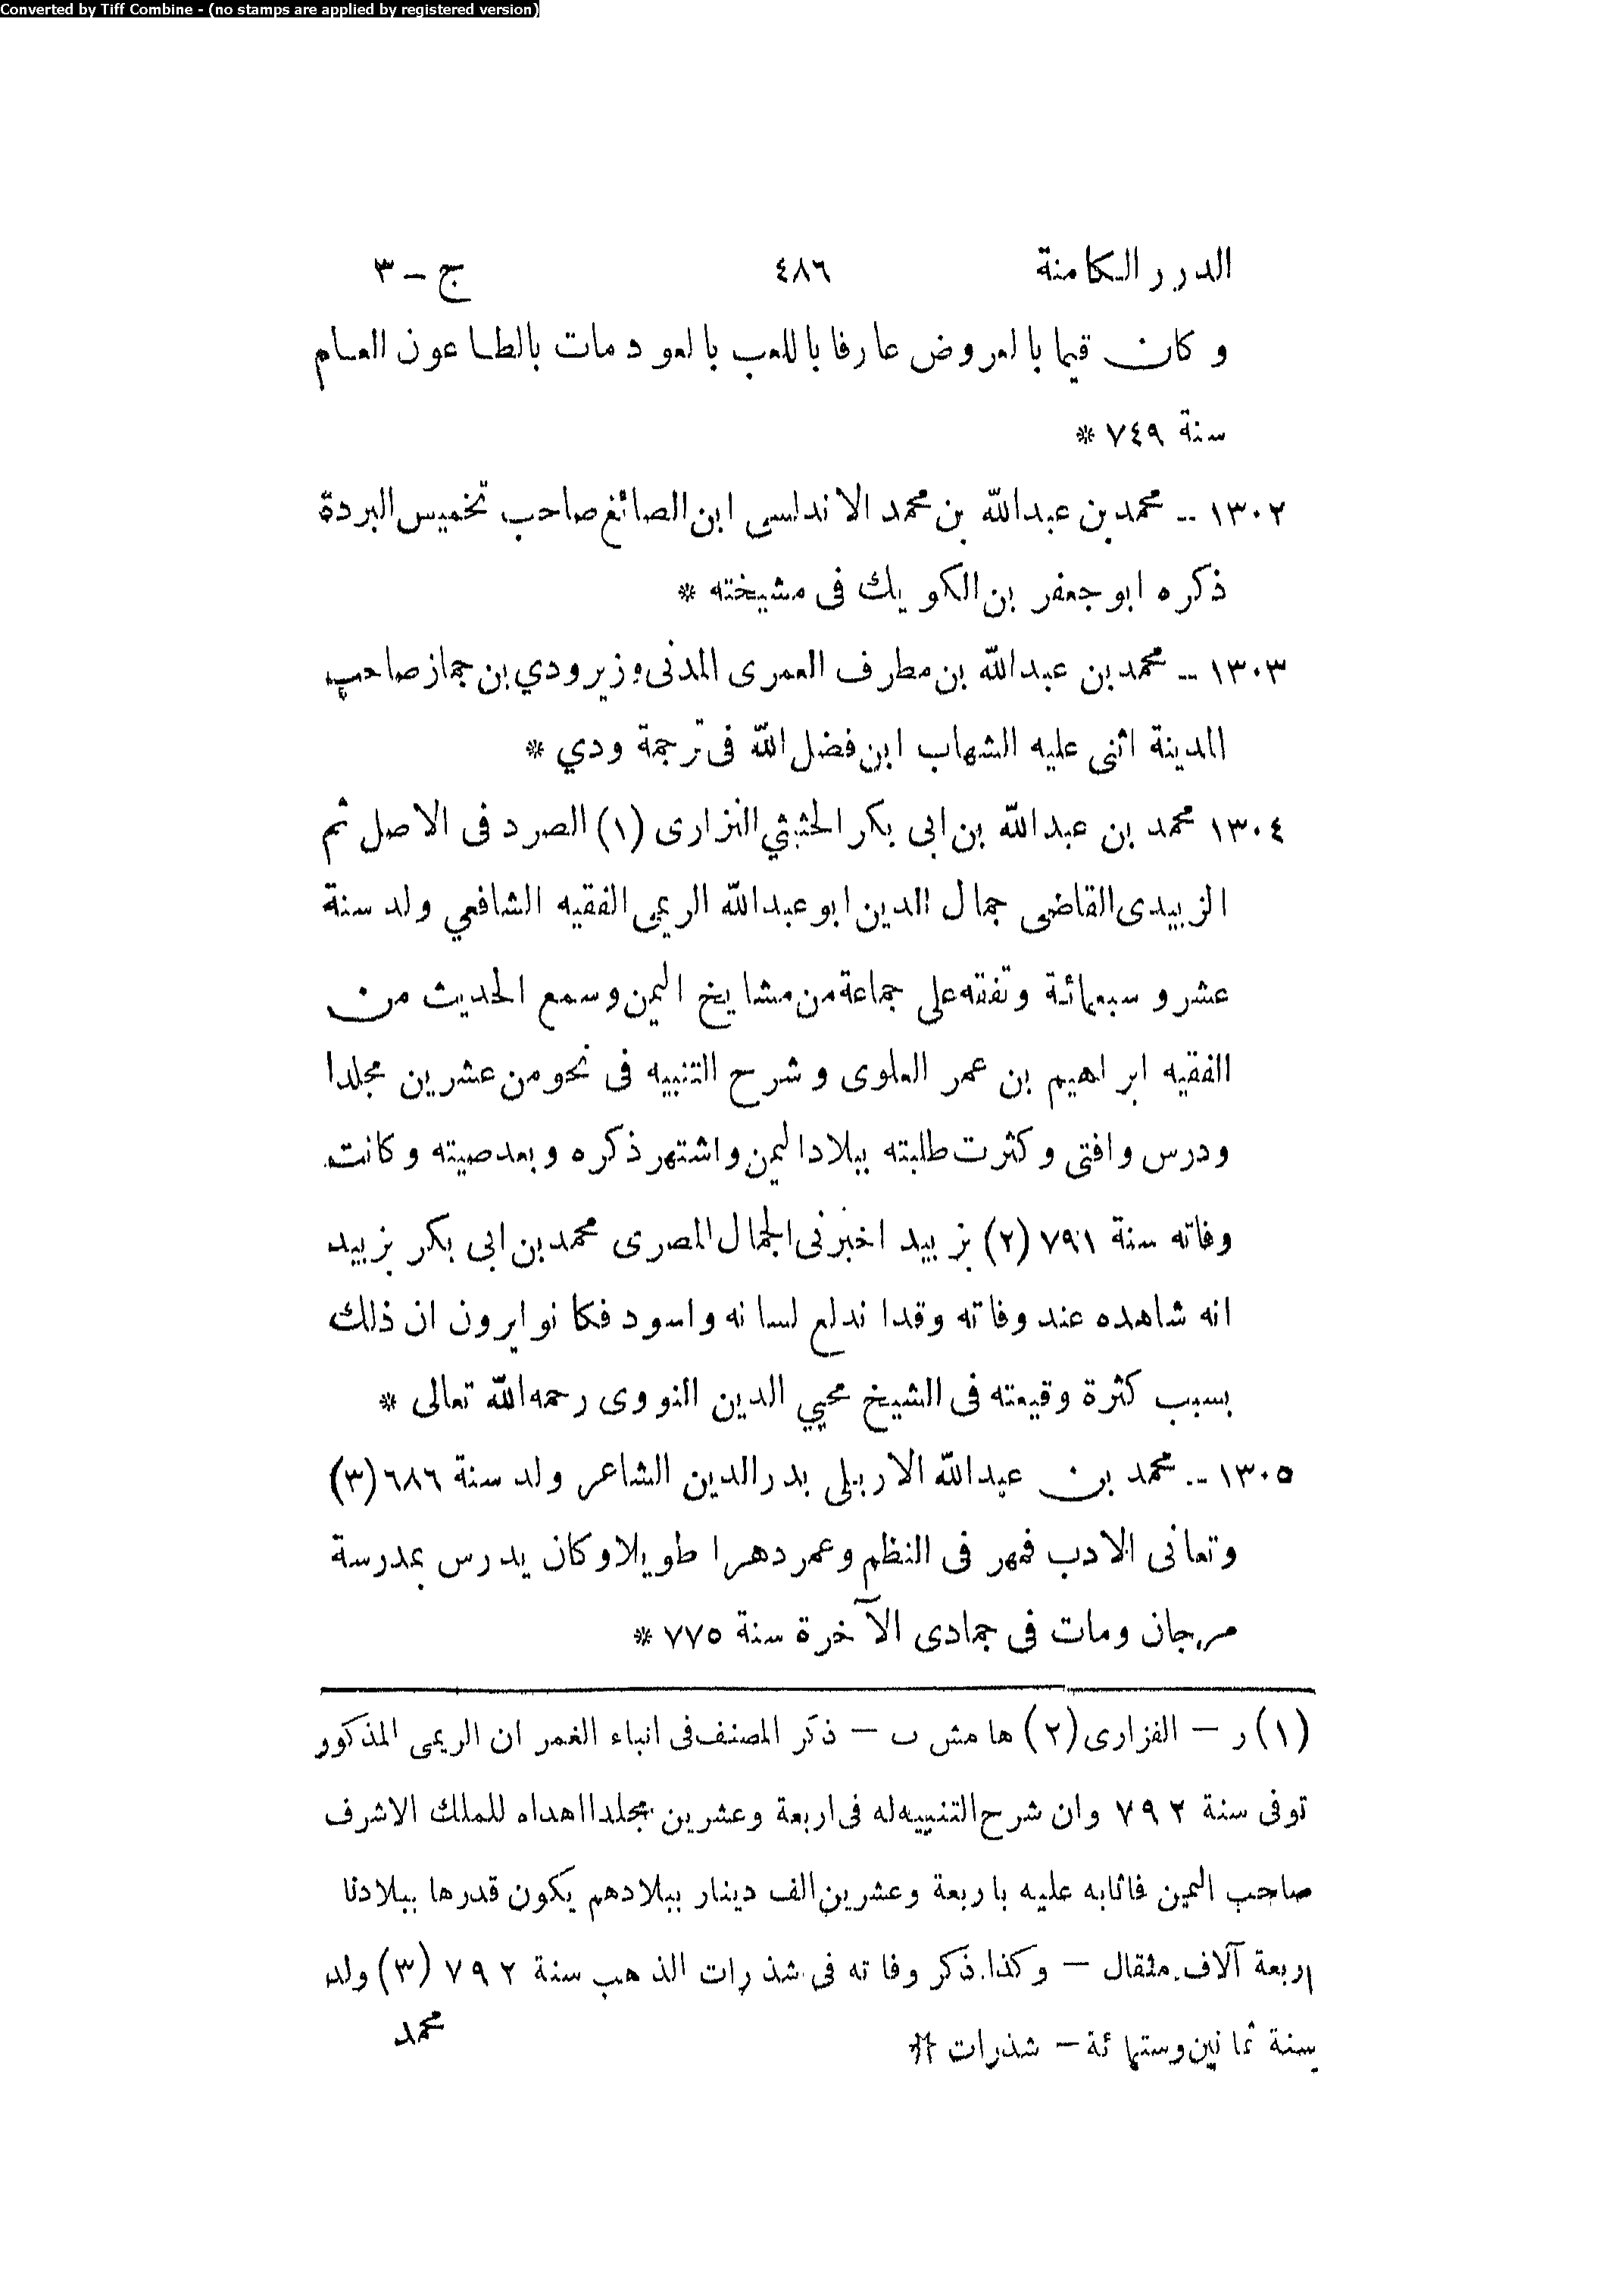 Converted by Tiff Combine - (no stamps are applied by registered version)
الدرر الكامنة ٤٨٦ ج – ٣
وكان قيما بالعروض عارفا باللعب بالعود مات بالطاعون العام
سنة ٧٤٩ *
١٣٠٢ – محمد بن عبدالله بن محمد الاندلسى ابن الصائغ صاحب تخميس البردة
ذكره ابو جعفر بن الكويك فى مشيخته *
١٣٠٣ – محمد بن عبدالله بن مطرف العمرى المدنى وزير ودي بن جماز صاحب
المدينة اثنى عليه الشهاب ابن فضل الله فى ترجمة ودي *
١٣٠٤ محمد بن عبدالله بن ابى بكر الحثيثي النزارى (١) الصرد فى الاصل ثم
الزبيدى القاضى جمال الدين ابو عبدالله الريمى الفقيه الشافعي ولد سنة
عشر و سبعمائة و تفقه على جماعة من مشايخ اليمن وسمع الحديث من
الفقيه ابراهيم بن عمر العلوى وشرح التنبيه فى نحو من عشرين مجلدا
ودرس وافتى وكثرت طلبته ببلاد اليمن واشتهر ذكره وبعد صيته وكانت
وفاته سنة ٧٩١ (٢) بزبيد اخبرنى الجمال المصرى محمد بن ابى بكر بزبيد
انه شاهده عند وفاته وقد اندلع لسانه واسود فكانوا يرون ان ذلك
بسبب كثرة وقيعته فى الشيخ محيي الدين النووى رحمه الله تعالى *
١٣٠٥ – محمد بن عبدالله الاربلى بدر الدين الشاعر ولد سنة ٦٨٦ (٣)
وتعانى الادب فمهر فى النظم وعمر دهرا طويلا وكان يدرس بمدرسة
مرجان ومات فى جمادى الآخرة سنة ٧٧٥ *
(١) ر – الفزارى (٢) هامش ب – ذكر المصنف فى انباء الغمر ان الريمى المذكور
توفى سنة ٧٩٢ وان شرح التنبيه له فى اربعة وعشرين مجلدا اهداه للملك الاشرف
صاحب اليمن فاثابه عليه باربعة وعشرين الف دينار ببلادهم يكون قدرها ببلادنا
اربعة آلاف مثقال – وكذا ذكر وفاته فى شذرات الذهب سنة ٧٩٢ (٣) ولد
سنة ثمانين وستمائة – شذرات *
محمد